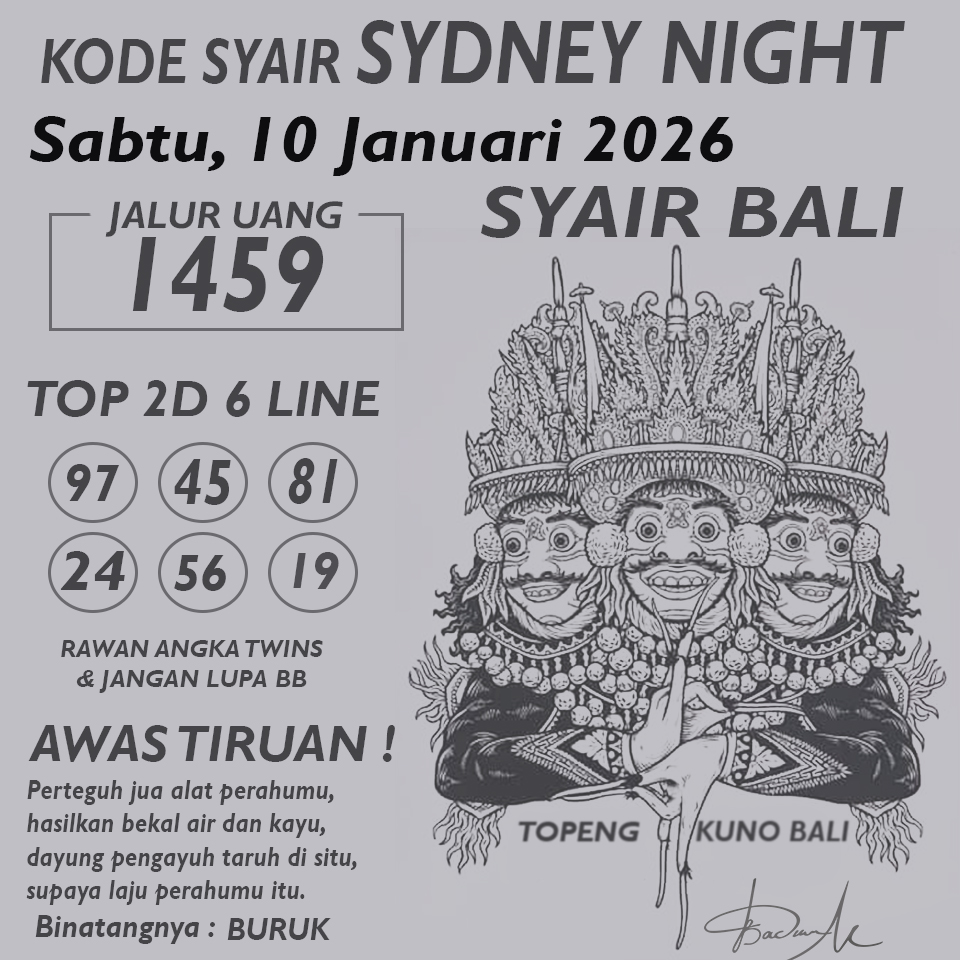 KODE SYAIR SYDNEY NIGHT
Sabtu, 10 Januari 2026
SYAIR BALI
JALUR UANG
1459
TOP 2D 6 LINE
97 45 81
24 56 19
RAWAN ANGKA TWINS
& JANGAN LUPA BB
AWAS TIRUAN !
Perteguh jua alat perahumu,
hasilkan bekal air dan kayu,
dayung pengayuh taruh di situ,
supaya laju perahumu itu.
Binatangnya : BURUK
TOPENG KUNO BALI